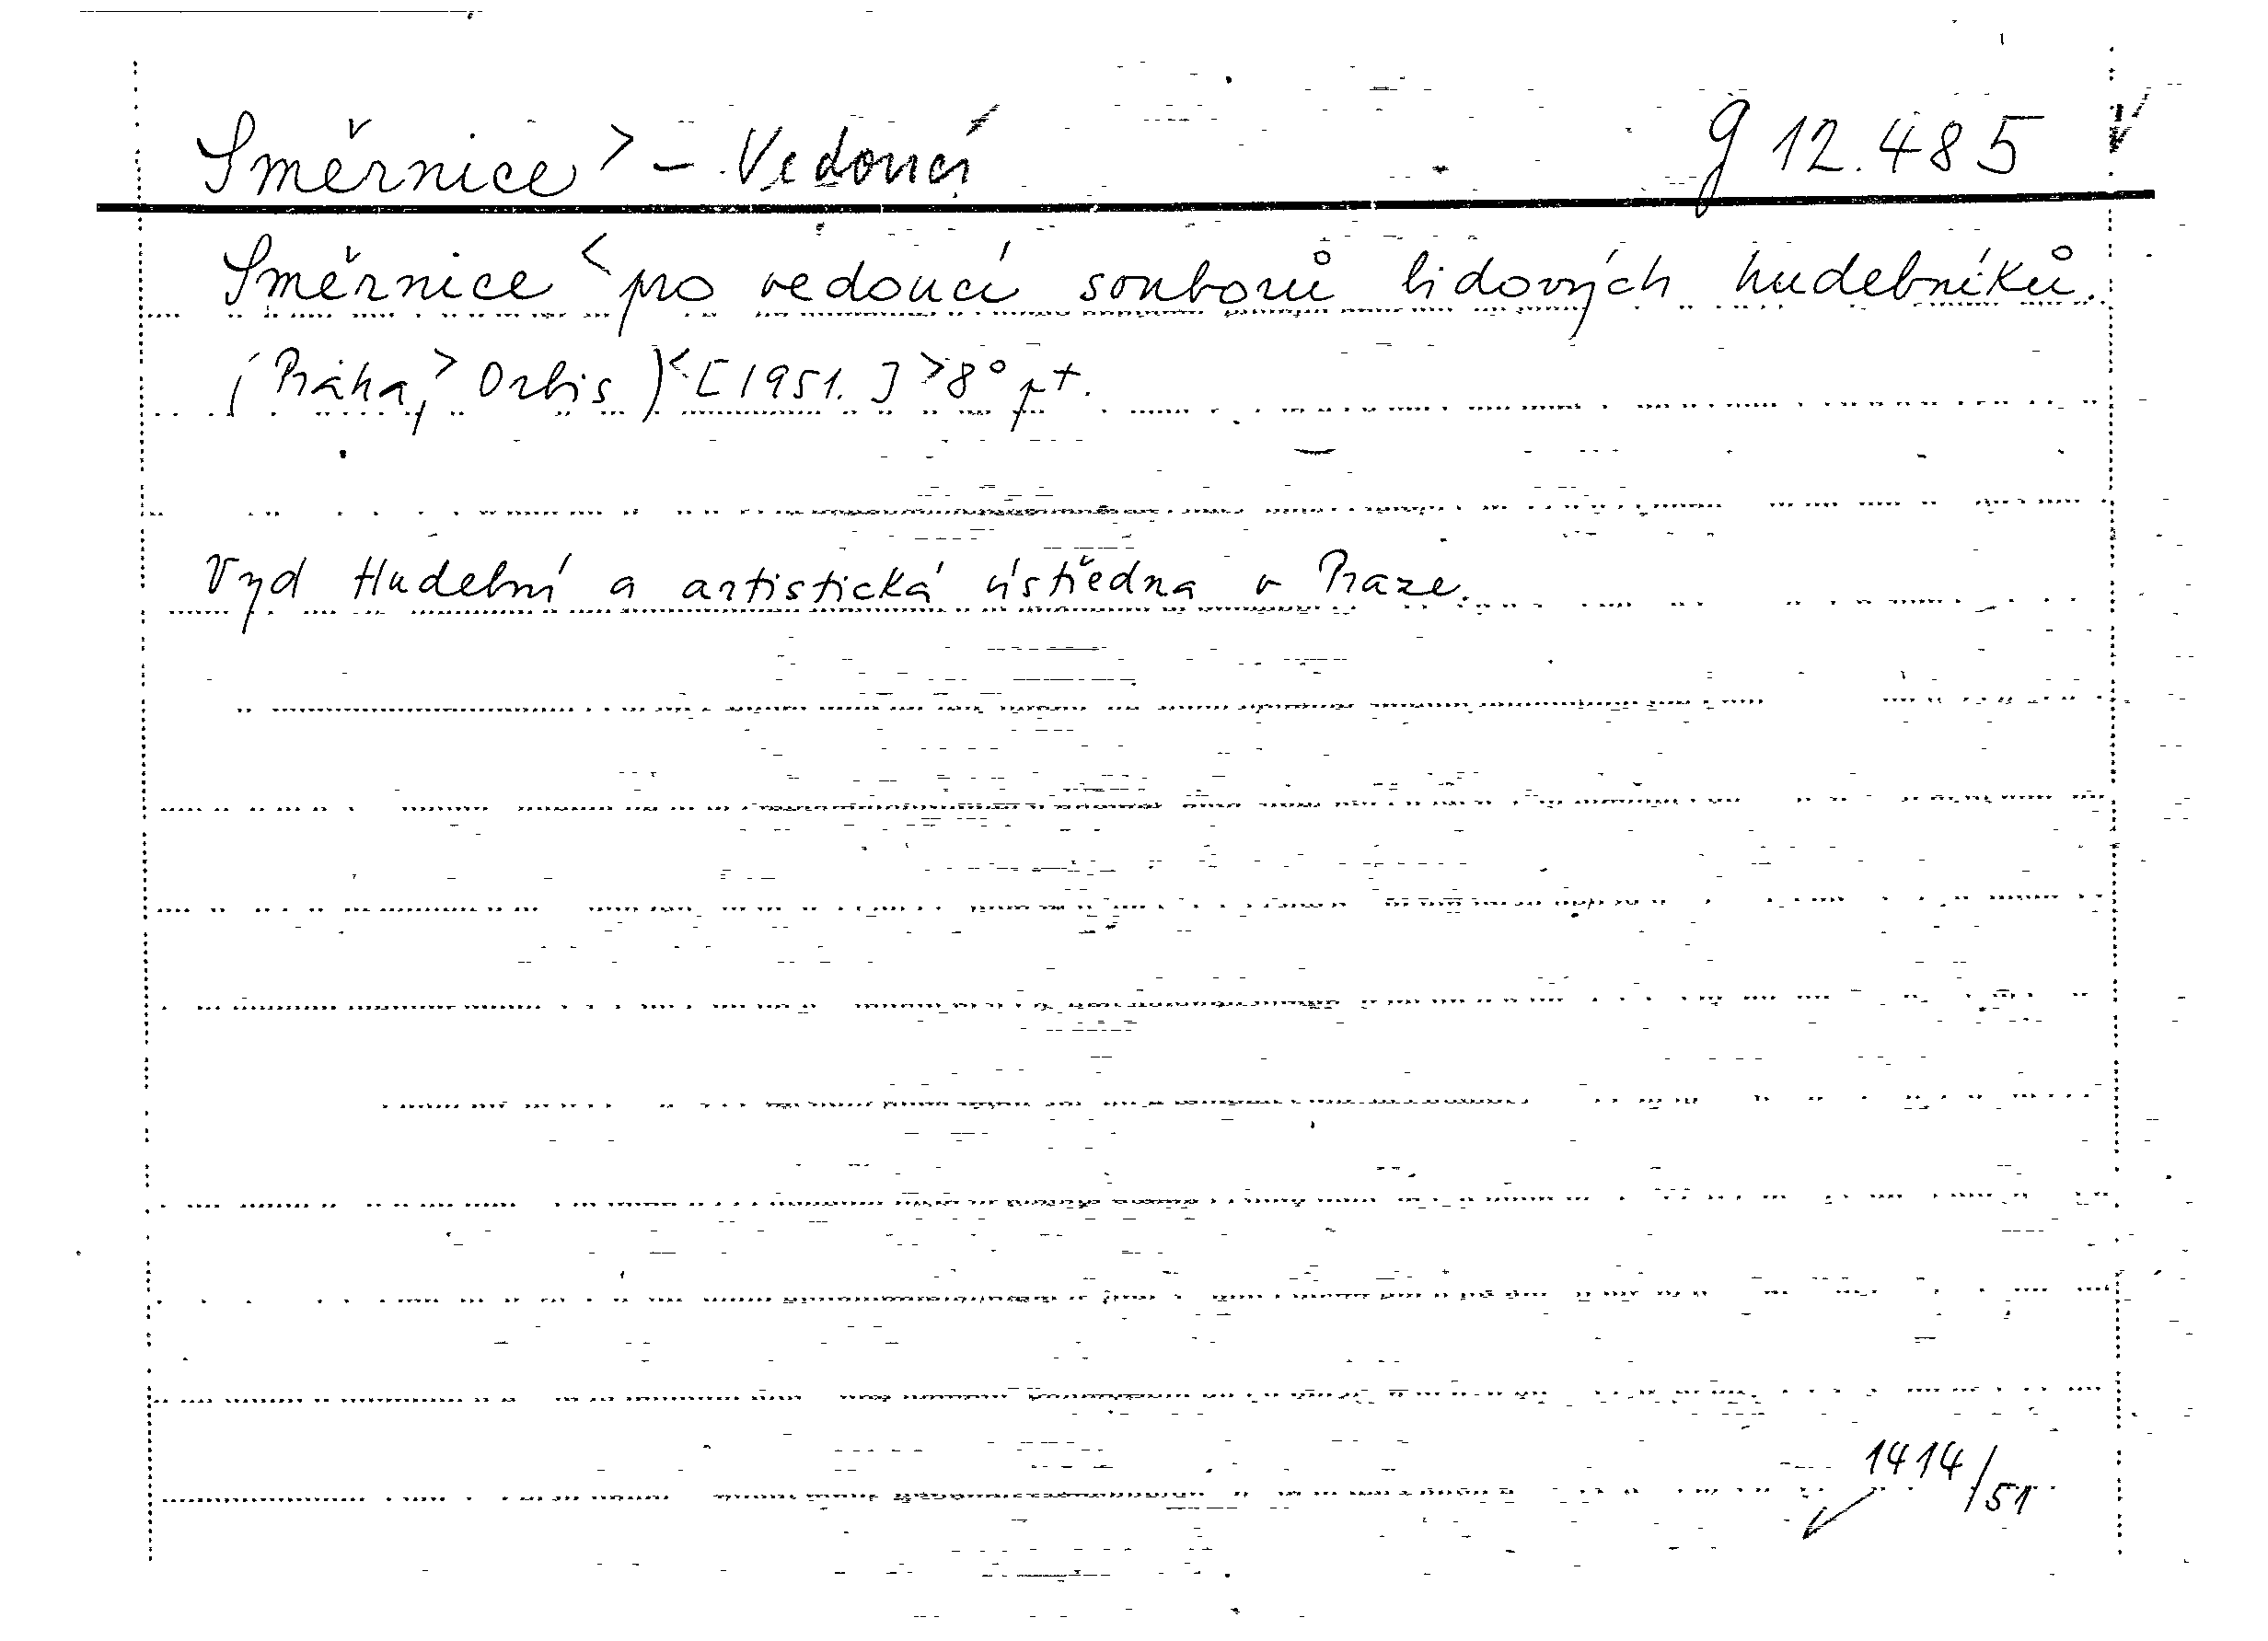 Směrnice > – Vedoucí g 12.485
Směrnice < pro vedoucí souborů lidových hudebníků.
(Praha, > Orbis) < [1951.] > 8°
Vyd Hudební a artistická ústředna v Praze.
1414/51